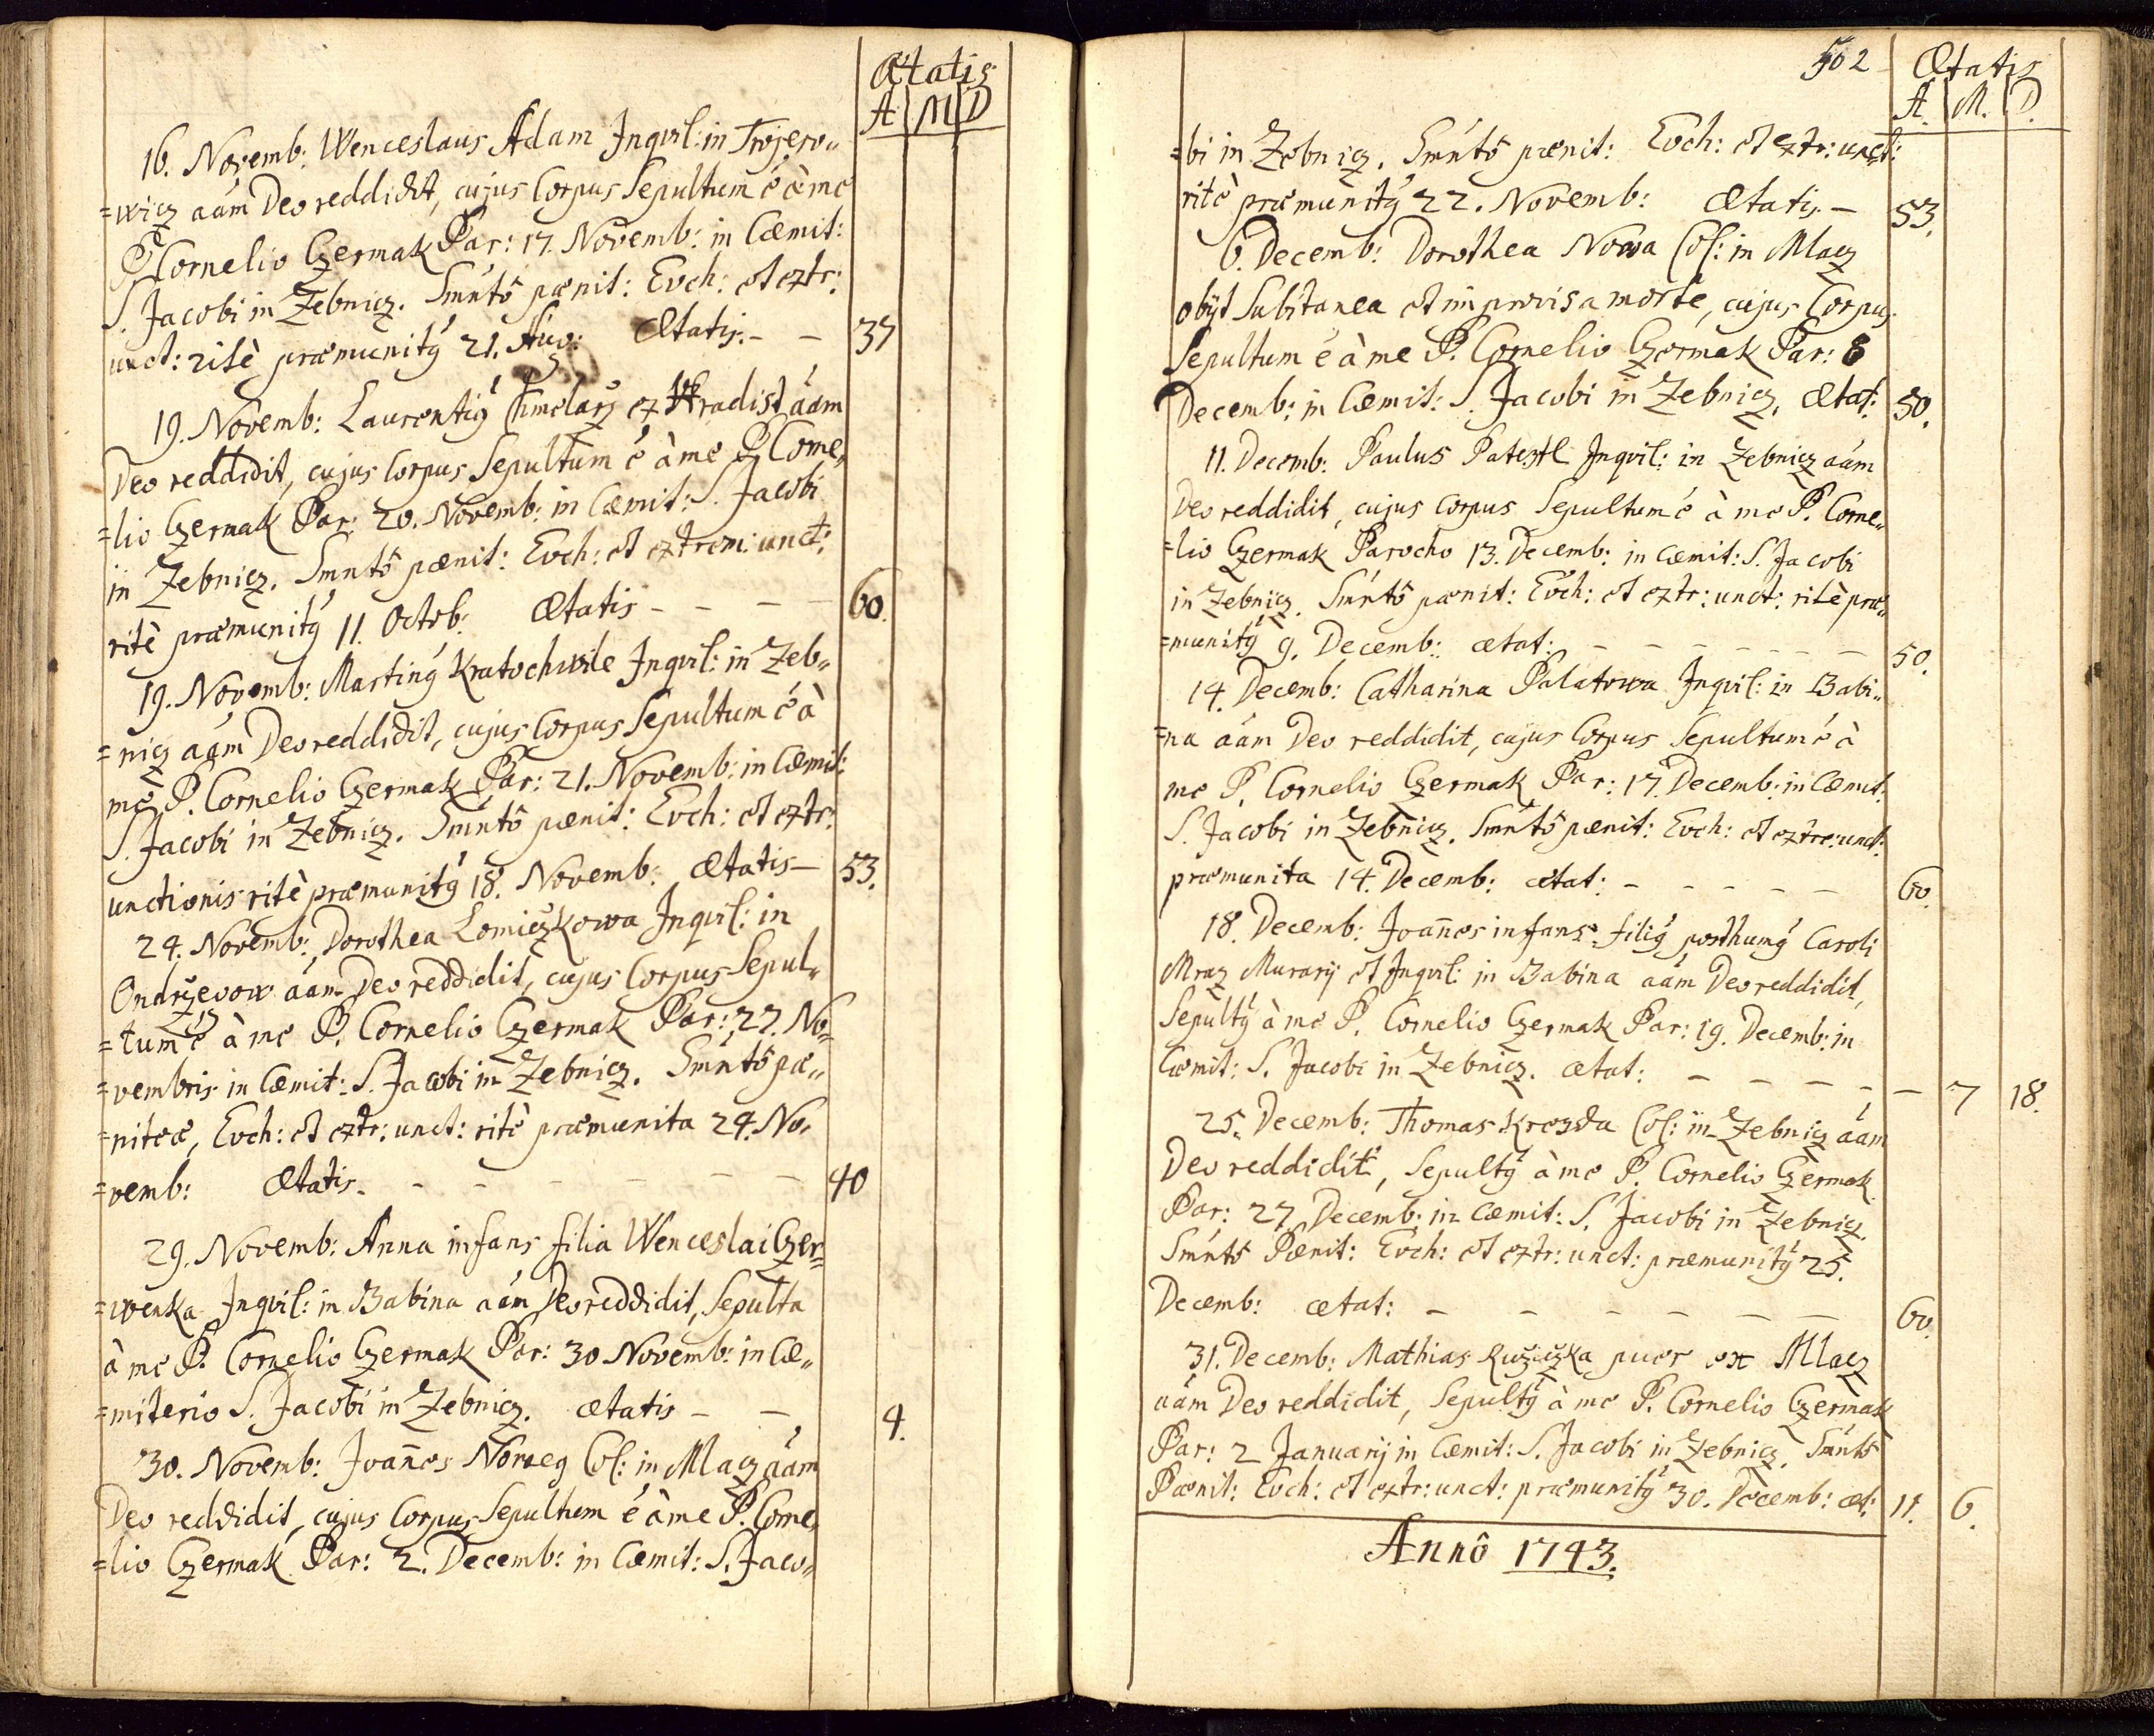 Ætatis
A M D
16. Novemb: Wenceslaus Adam Inqvil: in Trojero„
=wicz aãm Deo reddidit, cujus Corpus Sepultum é à me
P. Cornelio Czermak Par: 17. Novemb: in Cæmit:
S. Jacobi in Zebnicz. Smntô pænit: Evch: et extr:
unct: ritè præmunitq 21. Aug: Ætatis. – – 37
19. Novemb: Laurentiq Chmelarz ex Hradist aãm
Deo reddidit, cujus Corpus Sepultum é à me P. Corne„
=lio Czermak Par: 20. Novemb: in Cæmit: S. Jacobi
in Zebnicz. Smntô pænit: Evch: et extrem: unct:
ritè præmunitq 11. Octob: Ætatis – – – – 60.
19. Novemb: Martinq Kratochwile Inqvil: in Zeb„
=nicz aãm Deo reddidit, cujus Corpus Sepultum é à
me P. Cornelio Czermak Par: 21. Novemb: in Cæmit:
S. Jacobi in Zebnicz. Smntô pænit: Evch: et extr:
unctionis ritè præmunitq 18. Novemb: Ætatis – 53.
24. Novemb: Dorothea Lomiczkowa Inqvil: in
Ondrzevow aãm Deo reddidit, cujus Corpus Sepul„
=tum é à me P. Cornelio Czermak Par: 27. No„
=vembris in Cæmit: S. Jacobi in Zebnicz. Smntô pæ„
=niteæ, Evch: et extr: unct: ritè præmunita 24. No„
=vemb: Ætatis. – – – – – – 40
29. Novemb: Anna infans filia Wenceslai Czer=
=wenka Inqvil: in Babina aãm Deo reddidit, Sepulta
à me P. Cornelio Czermak Par: 30 Novemb: in Cæ„
=miterio S. Jacobi in Zebnicz. ætatis – – 4.
30. Novemb: Joañes Col: in Mlacz aãm
Deo reddidit, cujus Corpus Sepultum é à me P. Corne„
=lio Czermak Par: 2. Decemb: in Cæmit: S. Jaco„
502
Ætatis
A. M. D.
=bi in Zebnicz. Smntô pænit: Evch: et extr: unct:
ritè præmunitq 22. Novemb: Ætatis. – 53.
6. Decemb: Dorothea Nowa Col: in Mlacz
obijt Subitanea et improvisa morte, cujus Corpus
Sepultum é à me P. Cornelio Czermak Par: 8
Decemb: in Cæmit: S. Jacobi in Zebnicz. Ætat: 50.
11. Decemb: Paulus Pateystl Inqvil: in Zebnicz aãm
Deo reddidit, cujus Corpus Sepultum é à me P. Corne„
=lio Czermak Parocho 13. Decemb: in Cæmit: S. Jacobi
in Zebnicz. Smntô pænit: Evch: et extr: unct: ritè præ„
=munitq 9. Decemb: ætat: – – – – – – 50.
14. Decemb: Catharina Palatowa Inqvil: in Babi„
=na aãm Deo reddidit, cujus Corpus Sepultum é à
me P. Cornelio Czermak Par: 17. Decemb: in Cæmit:
S. Jacobi in Zebnicz. Smntô pænit: Evch: et extre: unct:
præmunita 14. Decemb: ætat: – – – – – 60.
18. Decemb: Joañes infans filiq posthumq Caroli
Mraz Murarij et Inqvil: in Babina aãm Deo reddidit,
Sepultq à me P. Cornelio Czermak Par: 19. Decemb: in
Cæmit: S. Jacobi in Zebnicz. ætat: – – – – – 7 18.
25. Decemb: Thomas Kreyda Col: in Zebnicz aãm
Deo reddidit, Sepultq à me P. Cornelio Czermak
Par: 27. Decemb: in Cæmit: S. Jacobi in Zebnicz.
Smntô Pænit: Evch: et extr: unct: præmunitq 25.
Decemb: ætat: – – – – – – 60.
31. Decemb: Mathias Ružiczka puer ex Mlacz
aãm Deo reddidit, Sepultq à me P. Cornelio Czermak
Par: 2 Januarij in Cæmit: S. Jacobi in Zebnicz. Smntô
Pænit: Evch: et extr: unct: præmunitq 30. Decemb: æt: 11. 6.
Annô 1743.